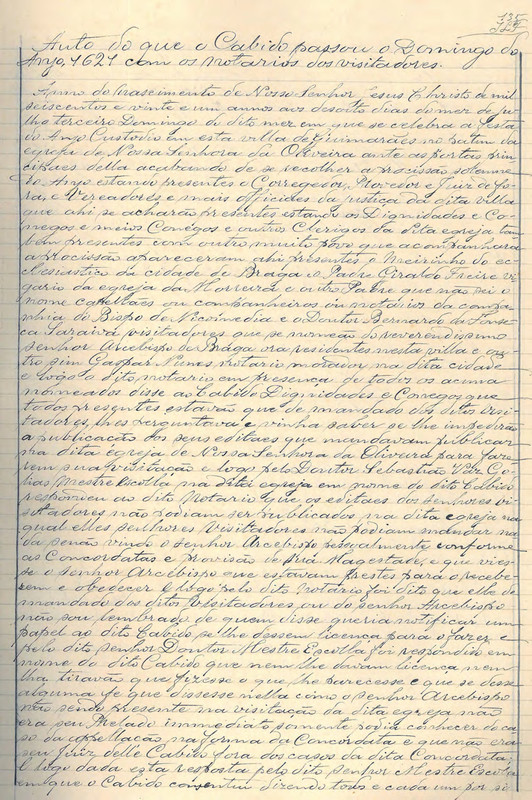 Auto do que o Cabido passou o Domingo do
Anjo, 1621 com os notarios dos visitadores.
Anno do Nascimento de Nosso Senhor Jesus Christo de mil
seiscentos e vinte e um annos aos desoito dias do mez de ju-
lho terceiro Domingo do dito mez em que se celebra a festa
do Anjo Custodio em esta villa de Guimarães no patim da
egreja de Nossa Senhora da Oliveira ante as portas prin-
cipaes della acabando de se recolher a procissão solemne
do Anjo estando presentes o Corregedor, Provedor e Juiz de fo-
ra, e Vereadores e mais officiaes da justiça da dita villa
que ahi se acharão presentes estando os Dignidades e Co-
negos e meios Conegos e outros Clerigos da dita egreja tam-
bem presentes com outro muito povo que acompanhara
a procissão apareceram ahi presentes o Meirinho do ec-
clesiastico da cidade de Braga o Padre Giraldo Freire vi-
gario da egreja da Morreira e outro Padre que não sei o
nome capellães ou companheiros ou notarios da compa-
nhia do Bispo de Nicomedia e o Doutor Bernardo da Fonse-
ca Saraiva visitadores que se nomeão do reverendissimo
senhor Arcebispo de Braga ora residentes nesta villa e ou-
tro sim Gaspar Nunes notario morador na dita cidade
e logo o dito notario em presença de todos os acima
nomeados disse ao Cabido Dignidades e Conegos que
todos presentes estavão que de mandado dos ditos visi-
tadores, lhes perguntava e vinha saber se lhe impedirão
a publicação dos seus editaes que mandavam publicar
na dita egreja de Nossa Senhora da Oliveira para faze-
rem sua visitação e logo pelo Doutor Sebastião Vaz Go-
lias Mestre Escolla na dita egreja em nome do dito Cabido
respondeu ao dito Notario que os editaes dos senhores vi-
sitadores não podiam ser publicados na dita egreja na
qual elles senhores Visitadores não podiam mandar na-
da senão vindo o senhor Arcebispo pessoalmente conforme
as Concordatas e provisão de Sua Magestade, e que vies-
se o senhor Arcebispo que estavam prestes para o recebe-
rem e obedecer E logo pelo dito Notario foi dito que elle de
mandado dos ditos Visitadores ou do senhor Arcebispo
não sou lembrado de quem disse queria notificar um
papel ao dito Cabido se lhe dessem licença para o fazer e
pelo dito senhor Doutor Mestre Escolla foi respondido em
nome do dito Cabido que nem lhe davam licença nem
lha tiravão que fizesse o que lhe parecesse e que se desse
alguma fe que dissesse nella como o senhor Arcebispo
não sendo presente na visitação da dita egreja não
era seu Prelado immediato somente podia conhecer do ca-
so da appellação na forma da Concordata e que não era
seu Juiz delle Cabido fora dos casos da dita Concordata:
E logo dada esta resposta pelo dito senhor Mestre Escola
em que o Cabido consentiu dizendo todos e cada um por si